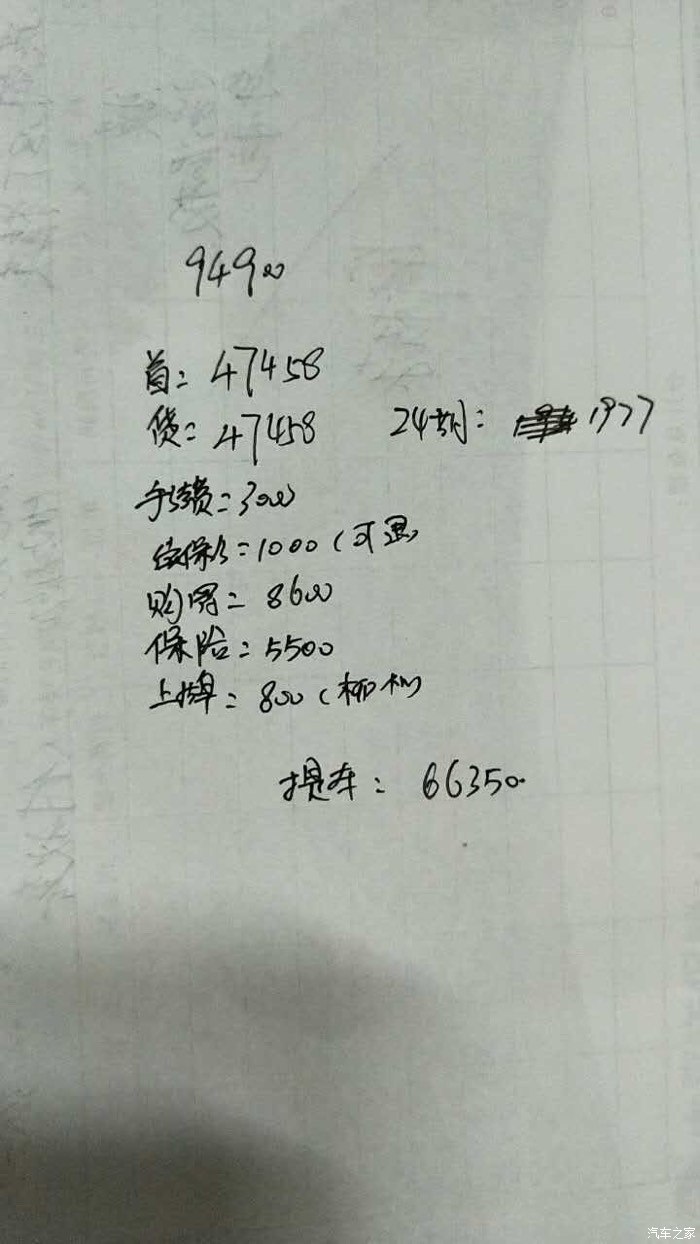 94900
首：47458
贷：47458 24期：1977
手续费：3000
续保：1000（可退）
购置：8600
保险：5500
上牌：800（柳州）
提车：66350
汽车之家